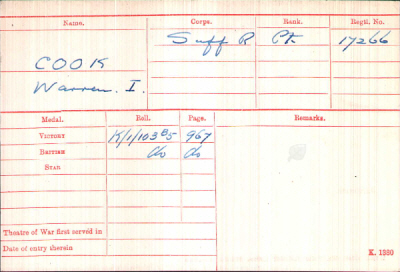 Name. Corps. Rank. Regtl. No.
COOK Suff R Pt. 17266
Warren. I.
Medal. Roll. Page. Remarks.
VICTORY K/1/103 967
BRITISH do do
STAR
Theatre of War first served in
Date of entry therein
K. 1380